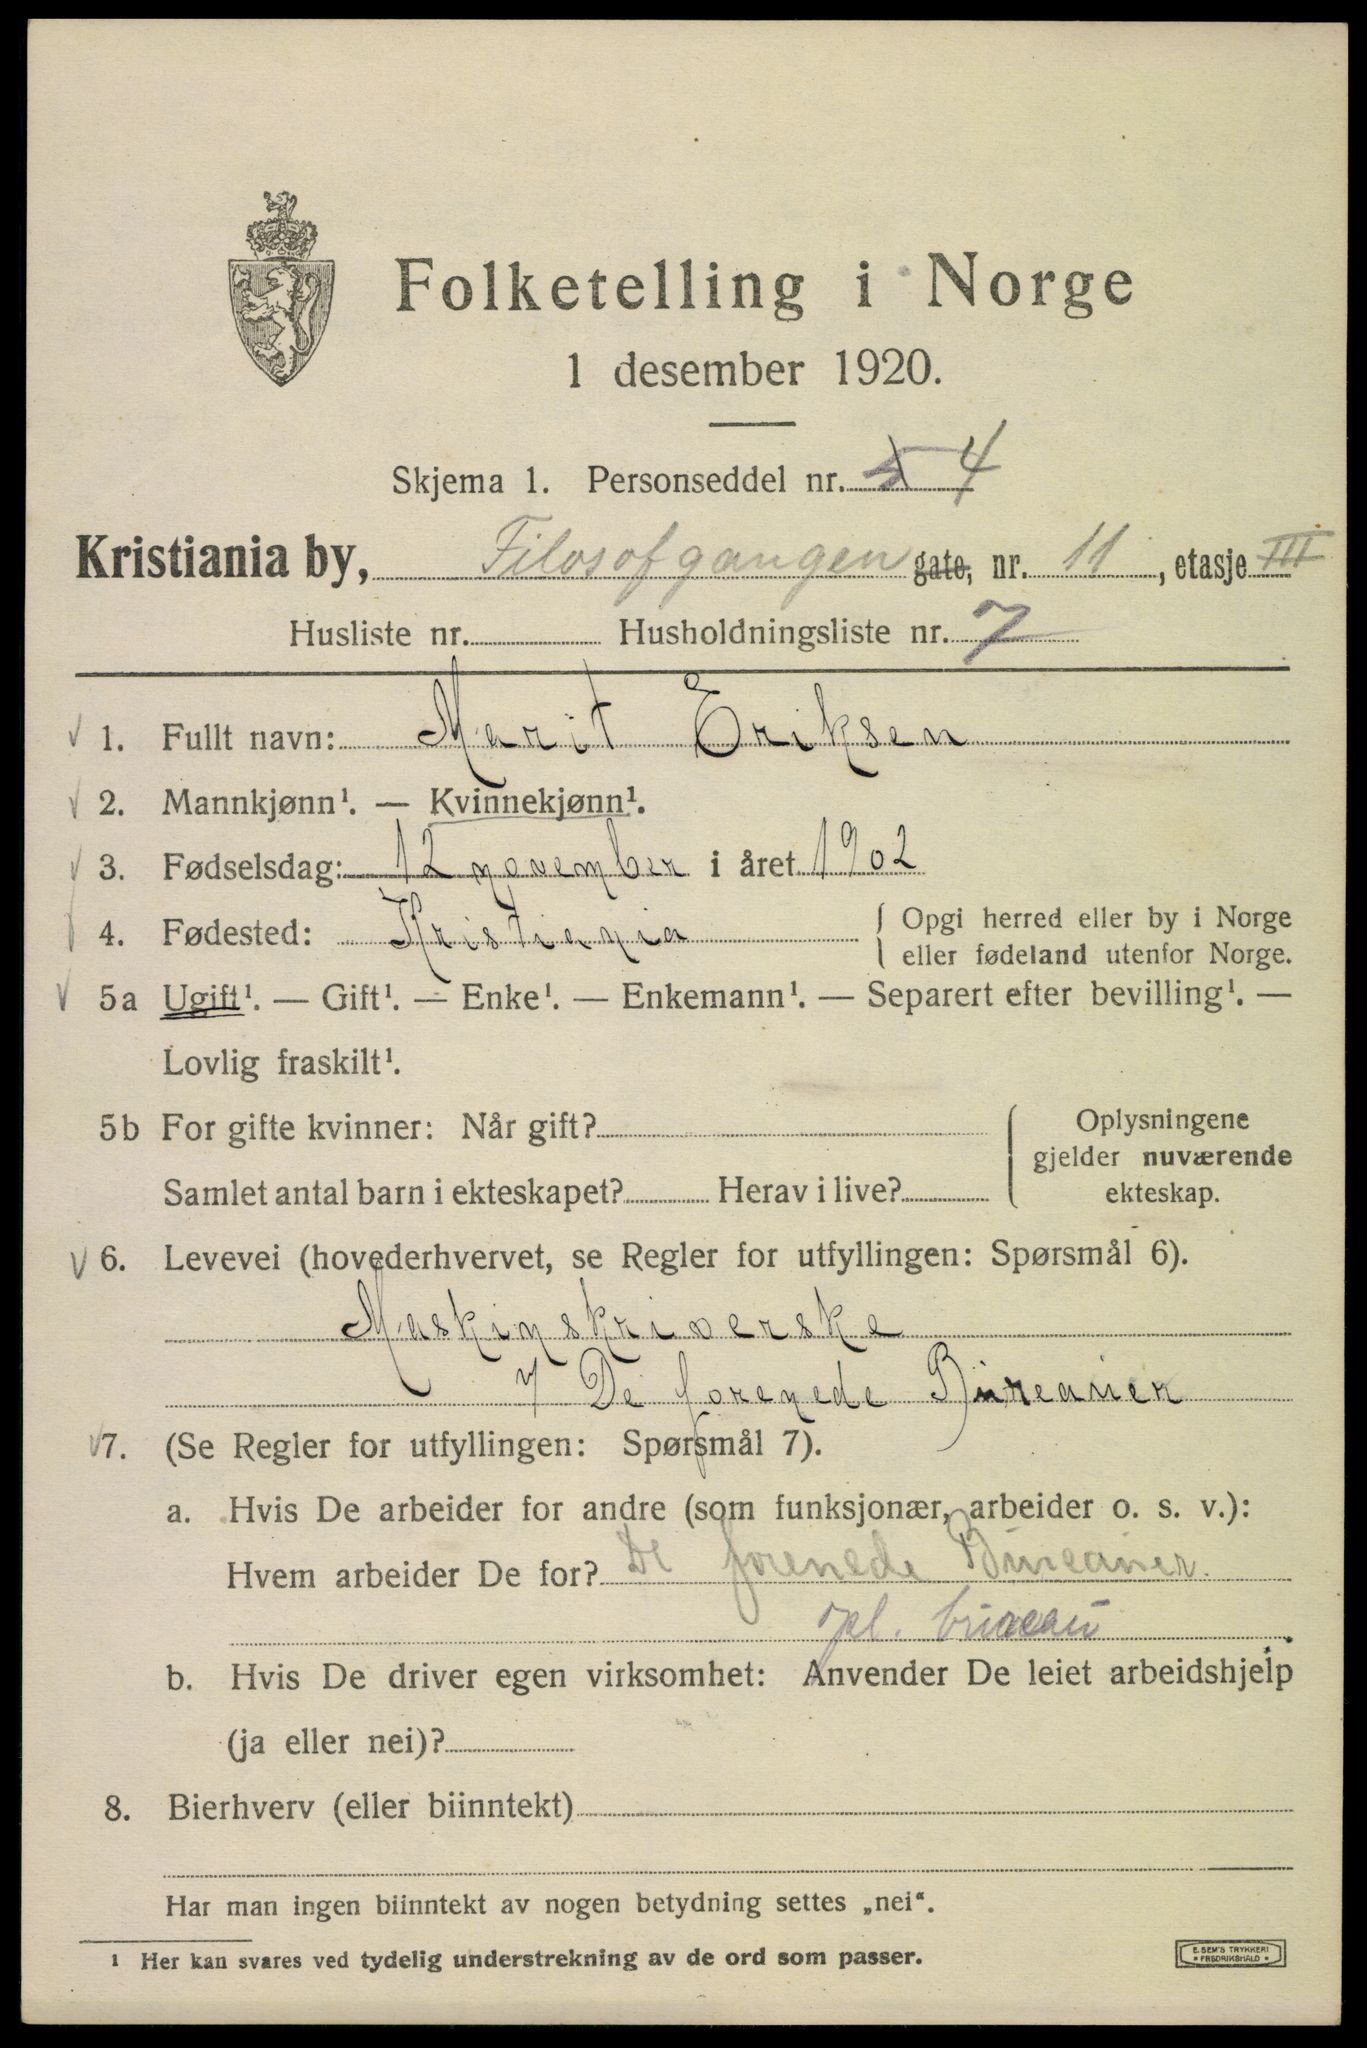 Folketelling i Norge
1 desember 1920.
Skjema 1. Personseddel nr. 5 4
Kristiania by, Filosofgangen gate, nr. 11, etasje III
Husliste nr. Husholdningsliste nr. 7
1. Fullt navn: Marit Eriksen
2. Mannkjønn¹. — Kvinnekjønn¹.
3. Fødselsdag: 12 november i året 1902
4. Fødested: Kristiania { Opgi herred eller by i Norge
eller fødeland utenfor Norge.
5a Ugift¹. — Gift¹. — Enke¹. — Enkemann¹. — Separert efter bevilling¹. —
Lovlig fraskilt¹.
5b For gifte kvinner: Når gift?
Samlet antal barn i ekteskapet? Herav i live?
Oplysningene
gjelder nuværende
ekteskap.
6. Levevei (hovederhvervet, se Regler for utfyllingen: Spørsmål 6).
Maskinskriverske
De forenede Bureauer
7. (Se Regler for utfyllingen: Spørsmål 7).
a. Hvis De arbeider for andre (som funksjonær, arbeider o. s. v.):
Hvem arbeider De for? De forenede Bureauer.
bureau
b. Hvis De driver egen virksomhet: Anvender De leiet arbeidshjelp
(ja eller nei)?
8. Bierhverv (eller biinntekt)
Har man ingen biinntekt av nogen betydning settes „nei“.
¹ Her kan svares ved tydelig understrekning av de ord som passer.
E. SEM'S TRYKKERI
• FREDRIKSHALD •